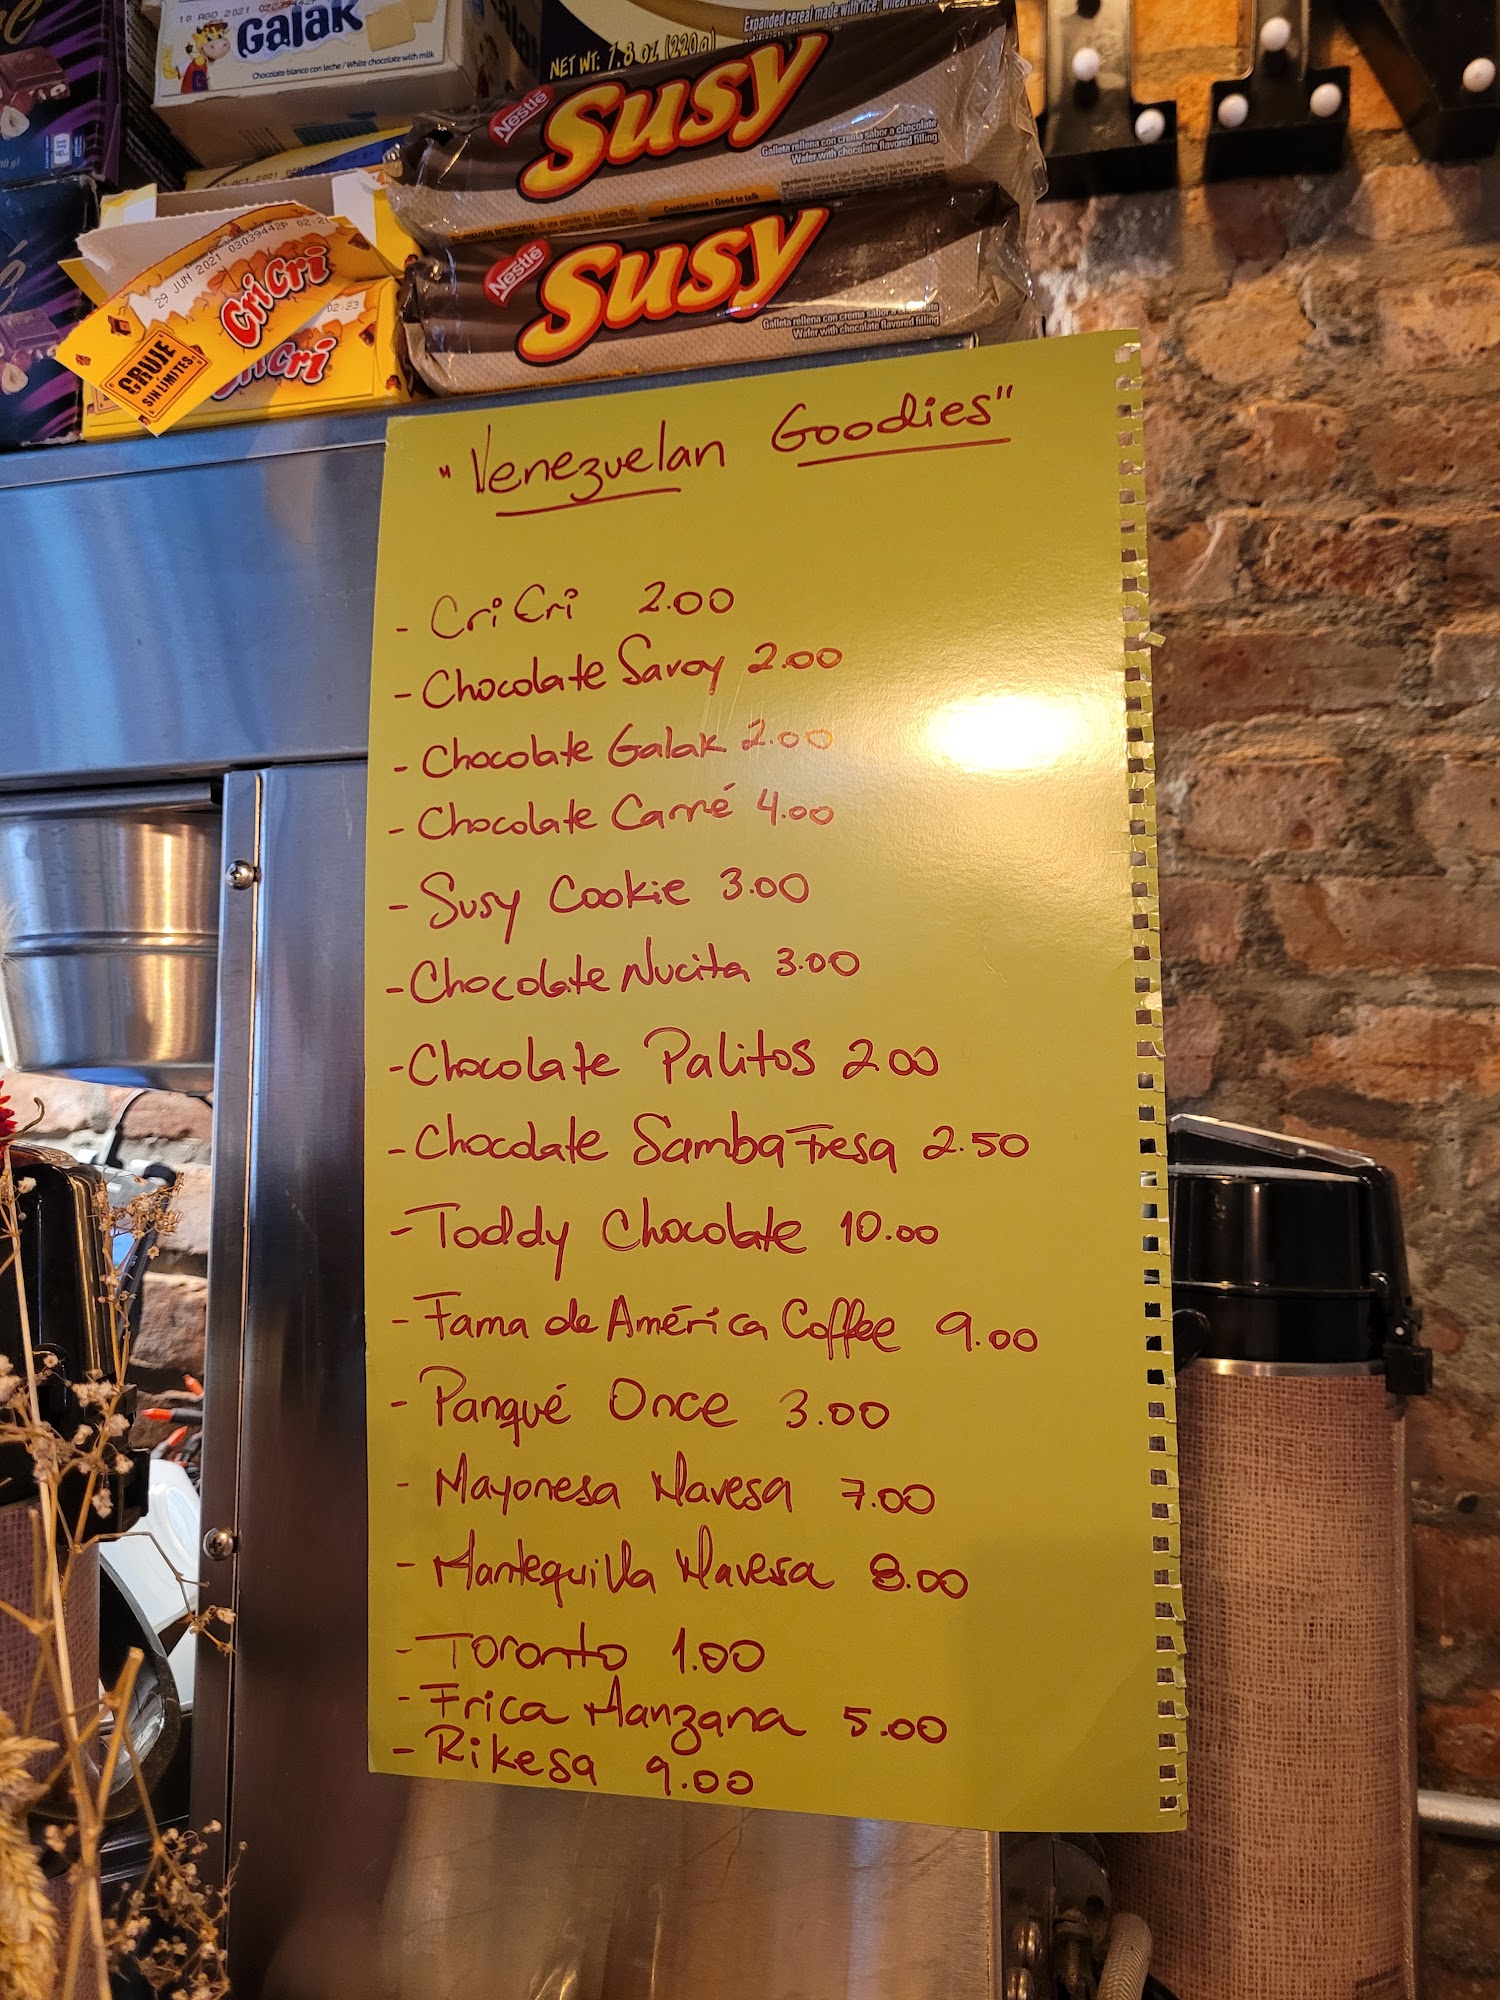 10 AGO 2021 0223944
Galak
Chocolate blanco con leche / White chocolate with milk
Expanded cereal made with rice, wheat and
NET WT: 7.8 OZ (220g)
Nestlé
Susy
Galleta rellena con crema sabor a chocolate
Wafer with chocolate flavored filling
Contáctanos / Good to talk
OCT 2021
29 JUN 2021 03039442P 02:2
Cri Cri
CRUJE
SIN LÍMITES
02:23
Cri
Nestlé
Susy
Galleta rellena con crema sabor a chocolate
Wafer with chocolate flavored filling
"Venezuelan Goodies"
- Cri Cri 2.00
- Chocolate Savoy 2.00
- Chocolate Galak 2.00
- Chocolate Carré 4.00
- Susy Cookie 3.00
- Chocolate Nucita 3.00
- Chocolate Palitos 2.00
- Chocolate Samba Fresa 2.50
- Toddy Chocolate 10.00
- Fama de América Coffee 9.00
- Panqué Once 3.00
- Mayonesa Mavesa 7.00
- Mantequilla Mavesa 8.00
- Toronto 1.00
- Frica Manzana 5.00
- Rikesa 9.00